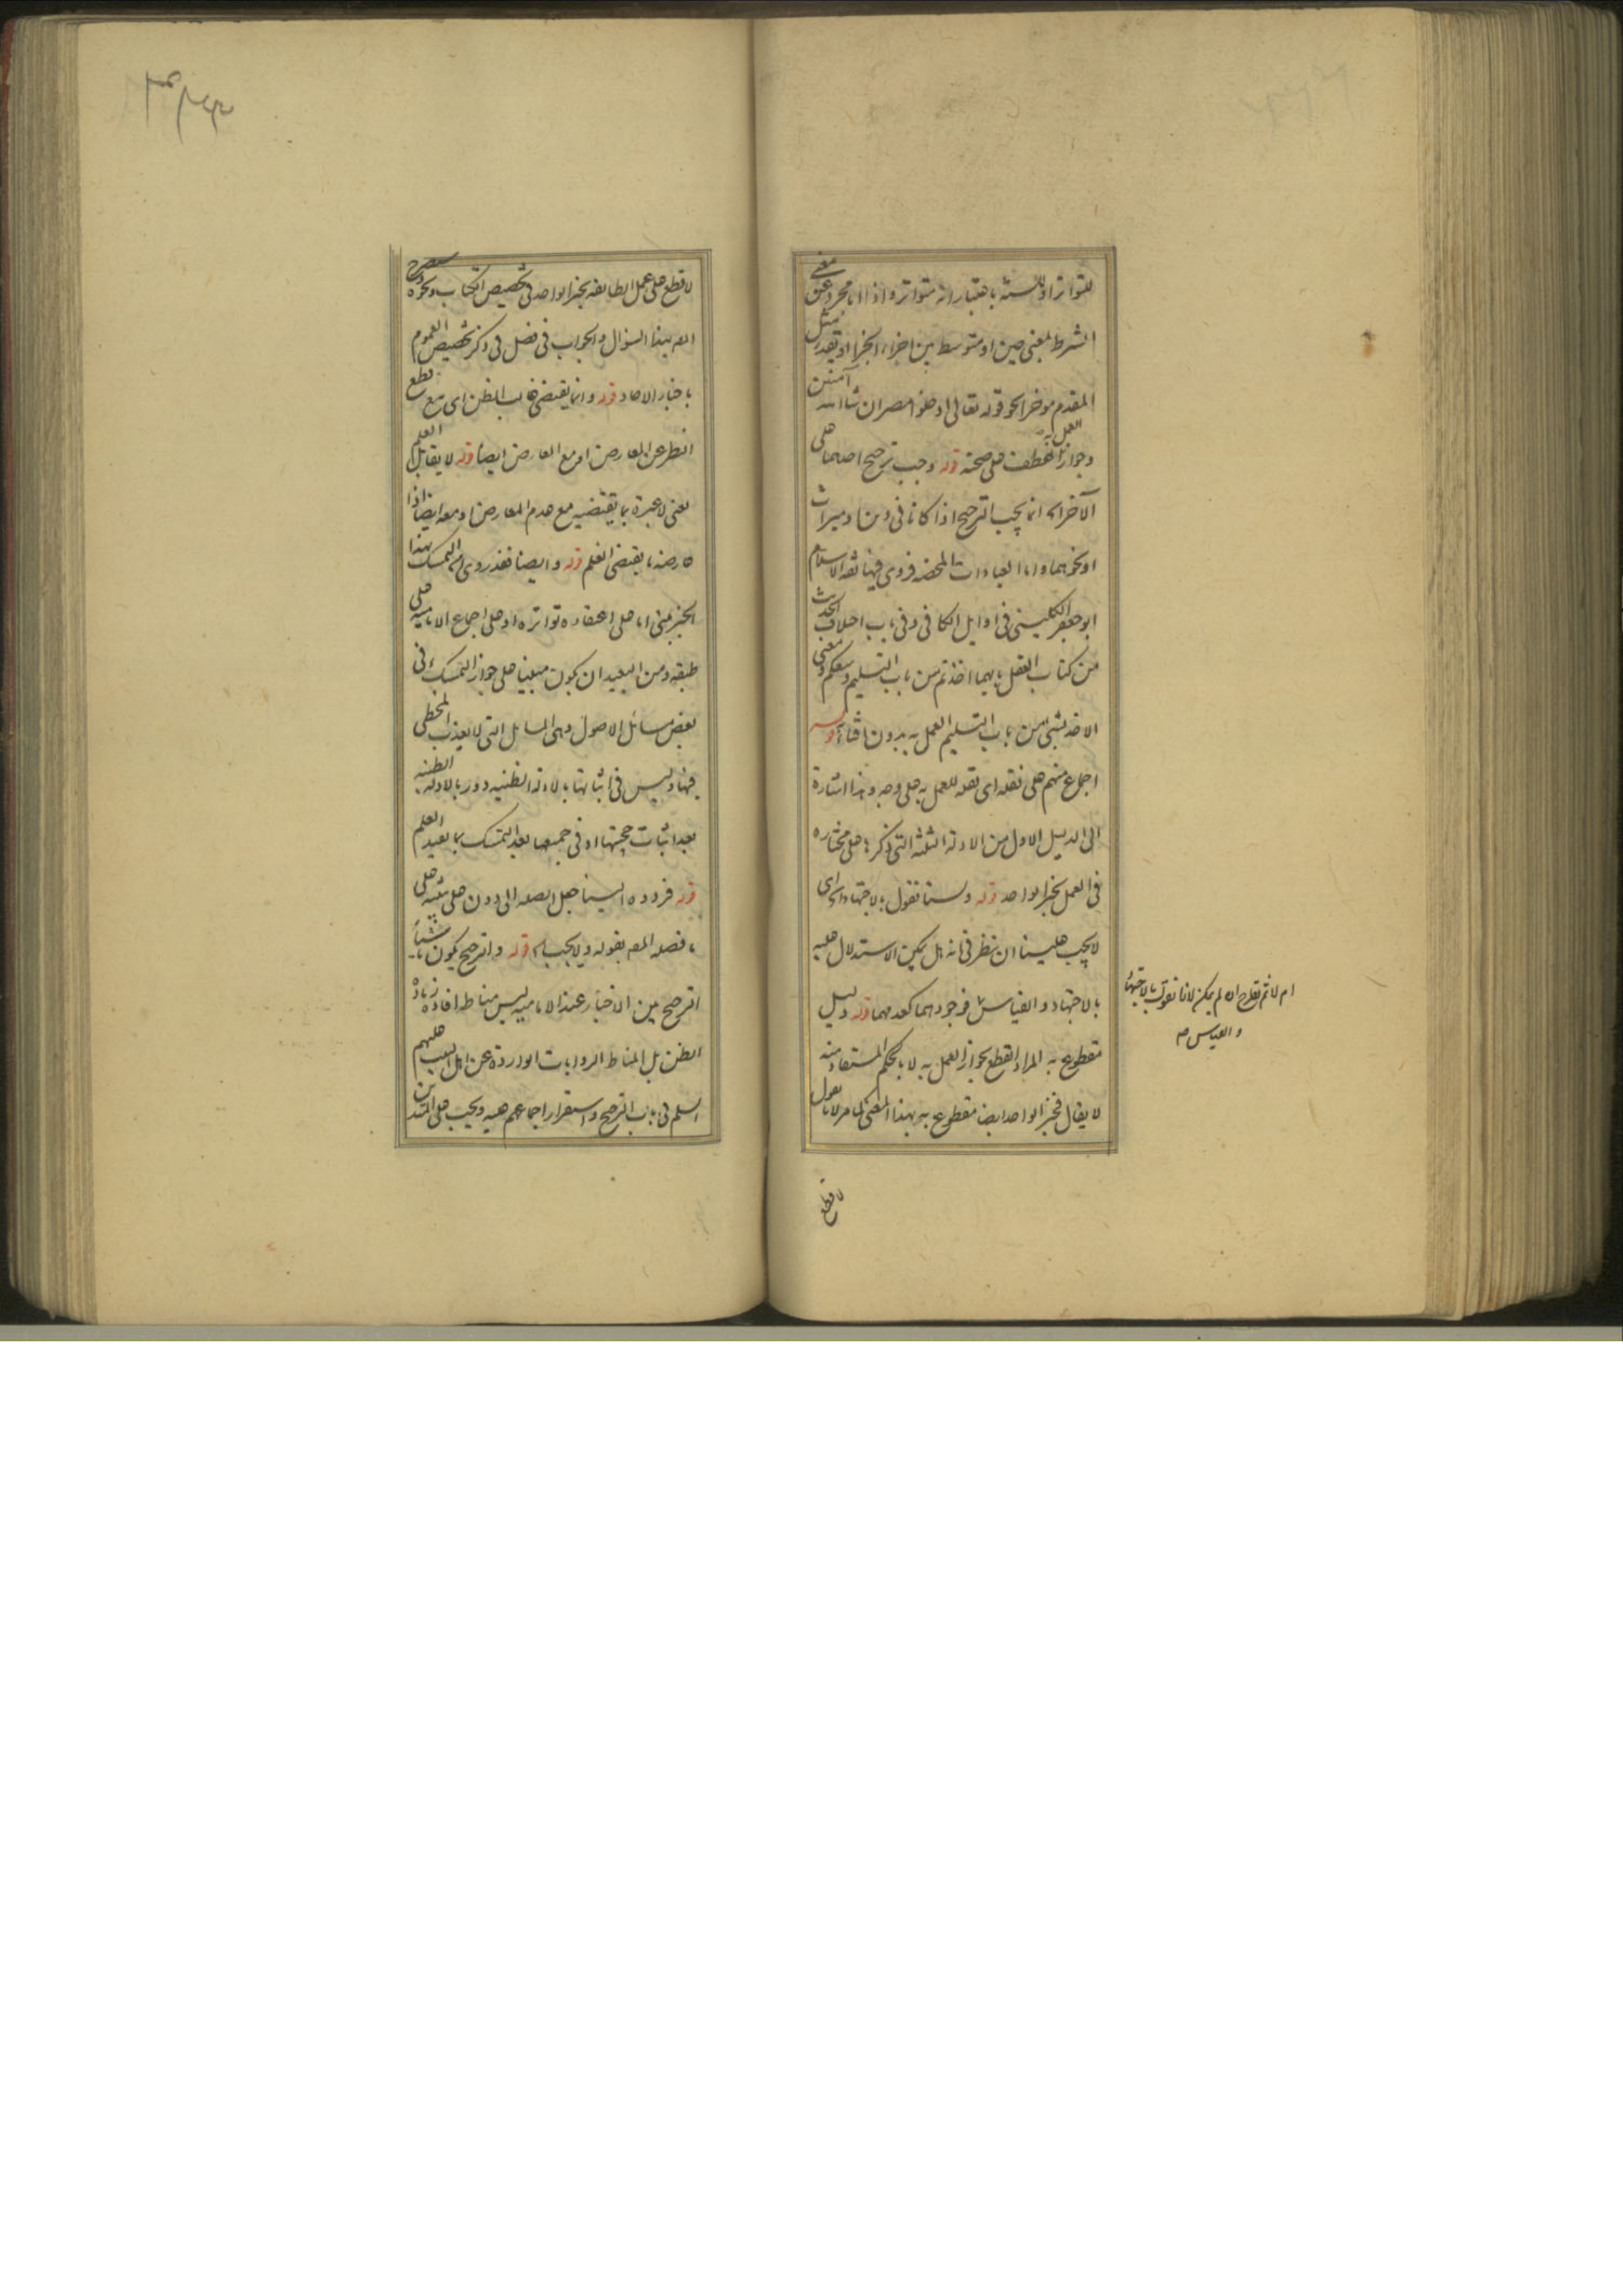 للتواتر او للسنة باعتبار انه متواتر و اذا اما مجرد عن معنى
الشرط بمعنى حين او متوسط بين اجزاء الجزا او تقدر مثل
المقدم مؤخرا نحو قوله تعالى ادخلوا مصر ان شاء الله آمنين
وجواز العمل به عطف على صحته قوله وجب ترجيح احدهما على
الآخر اه انما يجب الترجيح اذا كانا فى دين او ميراث
او نحوهما و اما العبادات المحضه فروى فيها ثقه الاسلام
ابو جعفر الكلينى فى اوايل الكافى و فى باب اختلاف الحديث
من كتاب العقل بايهما اخذتم من باب التسليم وسعكم و معنى
الاخذ بشئ من باب التسليم العمل به بدون افتاء قوله
اجماع منهم على نقله اى نقله للعمل به على وجه و هذا اشارة
الى الدليل الاول من الادلة الثلثة التى ذكرها على مختاره
فى العمل بخبر الواحد قوله و لسنا نقول بالاجتهاد اه اى
لا يجب علينا ان ننظر فى انه هل يمكن الاستدلال عليه
بالاجتهاد و القياس فوجودهما كعدمهما قوله دليل
مقطوع به المراد القطع بجواز العمل به لا بالحكم المستفاد منه
لا يقال فخبر الواحد ايضا مقطوع به بهذا المعنى لما مر لانا نقول
لا قطع
ام لا ثم نطرح ان لم يمكن لانا نقول بالاجتهاد
و القياس منه
لا قطع على عمل الطايفه بخبر الواحد فى تخصيص الكتاب و نحوه و سيصرح
المصه بهذا السؤال و الجواب فى فصل فى ذكر تخصيص العموم
باخبار الاحاد قوله و انما يقتضى غالب الظن اى مع قطع
النظر عن المعارض او مع المعارض ايضا قوله لا يقابل العلم
يعنى لا عبرة بما يقتضيه مع عدم المعارض او معه ايضا اذا
عارضه ما يقتضى العلم قوله و ايضا فقد روى اه التمسك بهذا
الخبر مبنى اما على اعتقاده تواتره او على اجماع الاماميه على
طبقه و من البعيد ان يكون مبنيا على جواز التمسك به فى
بعض مسائل الاصول و هى المسايل التى لا يعذب المخطى
فيها و ليس فى اثباتها بالادلة الظنيه دور بالادلة الظنيه
بعد اثبات حجيتها او فى جميعها بعد التمسك بما يفيد العلم
قوله فردوه الينا جعل الصله الى دون على تنبيه على
ما فصله المصه بقوله و لا يجب اه قوله و الترجيح يكون باشياء
الترجيح بين الاخبار عند الاماميه ليس مناطه افادة زيادة
الظن بل المناط الروايات الواردة عن اهل البيت عليهم
السلم فى باب الترجيح و استقرار اجماعهم عليه و يجب على المتدين